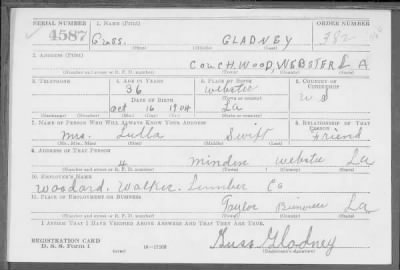 SERIAL NUMBER 1. NAME (Print) ORDER NUMBER
4587 Guss. GLADNEY 382
(First) (Middle) (Last)
2. ADDRESS (Print)
COUCHWOOD, WEBSTER LA
(Number and street or R. F. D. number) (Town) (County) (State)
3. TELEPHONE 4. AGE IN YEARS 5. PLACE OF BIRTH 6. COUNTRY OF CITIZENSHIP
36 Webster
DATE OF BIRTH (Town or county) U S
Oct 16 1904 La
(Exchange) (Number) (Mo.) (Day) (Yr.) (State or country)
7. NAME OF PERSON WHO WILL ALWAYS KNOW YOUR ADDRESS 8. RELATIONSHIP OF THAT PERSON
Mrs. Lulla Swift Friend
(Mr., Mrs., Miss) (First) (Middle) (Last)
9. ADDRESS OF THAT PERSON
Minden Webster La
(Number and street or R. F. D. number) (Town) (County) (State)
10. EMPLOYER'S NAME
Woodard. Walker. Lumber Co
11. PLACE OF EMPLOYMENT OR BUSINESS
Taylor Bienville La
(Number and street or R. F. D. number) (Town) (County) (State)
I AFFIRM THAT I HAVE VERIFIED ABOVE ANSWERS AND THAT THEY ARE TRUE.
REGISTRATION CARD
D. S. S. Form 1 Guss Gladney
(Registrant's signature)